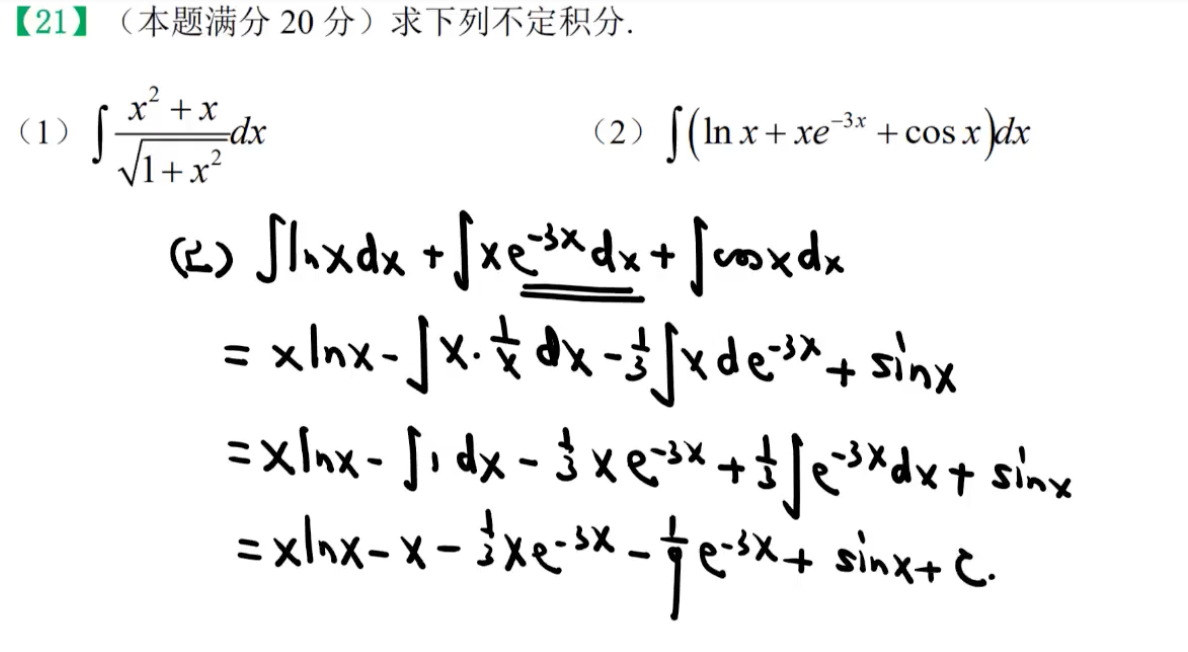 【21】（本题满分 20 分）求下列不定积分.
（1）∫ (x² + x)/√(1 + x²) dx （2）∫(ln x + xe⁻³ˣ + cos x)dx
(2) ∫lnxdx + ∫xe⁻³ˣdx + ∫cosxdx
= xlnx - ∫x·1/x dx - 1/3∫xde⁻³ˣ + sinx
= xlnx - ∫1dx - 1/3xe⁻³ˣ + 1/3∫e⁻³ˣdx + sinx
= xlnx - x - 1/3xe⁻³ˣ - 1/9e⁻³ˣ + sinx + C.